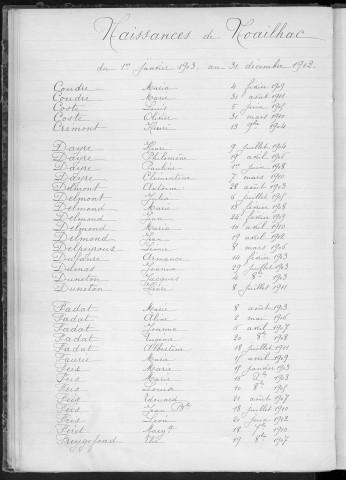 Naissances de Noailhac
du 1er Janvier 1903 au 31 décembre 1912.
Coudre Maria 4 février 1909
Coudre Marie 31 août 1911
Coste Louis 5 juin 1905
Coste Olivier 31 mars 1910
Cremont Henri 13 9bre 1904
Dayre 9 juillet 1904
Dayre Philomène 19 avril 1906
Dayre Pauline 1er juin 1908
Dayre Clémentine 7 mars 1910
Delmont Antoine 28 août 1903
Delmont Julia 6 juillet 1905
Delmond Marie 18 février 1908
Delmond Jean 24 février 1909
Delmond Maria 10 avril 1910
Delmond Jean 19 avril 1912
Delpeyrous 8 mars 1906
Dufaure Armance 14 février 1903
Dumas Jeanne 29 juillet 1903
Duneton Jacques 4 8bre 1903
Duneton 8 juillet 1911
Fadat Marie 8 août 1903
Fadat Aline 2 mai 1906
Fadat Jeanne 6 avril 1907
Fadat 20 8bre 1908
Fadat Albertine 18 juillet 1911
Faurie Maria 15 avril 1909
Feix Marie 19 janvier 1903
Feix Marie 16 1903
Feix Louis 10 8bre 1905
Feix Edouard 21 août 1907
Feix Jean Bte 18 juillet 1910
Feix Léon 20 1912
Feret Margte 18 1910
Freygefond 19 1907